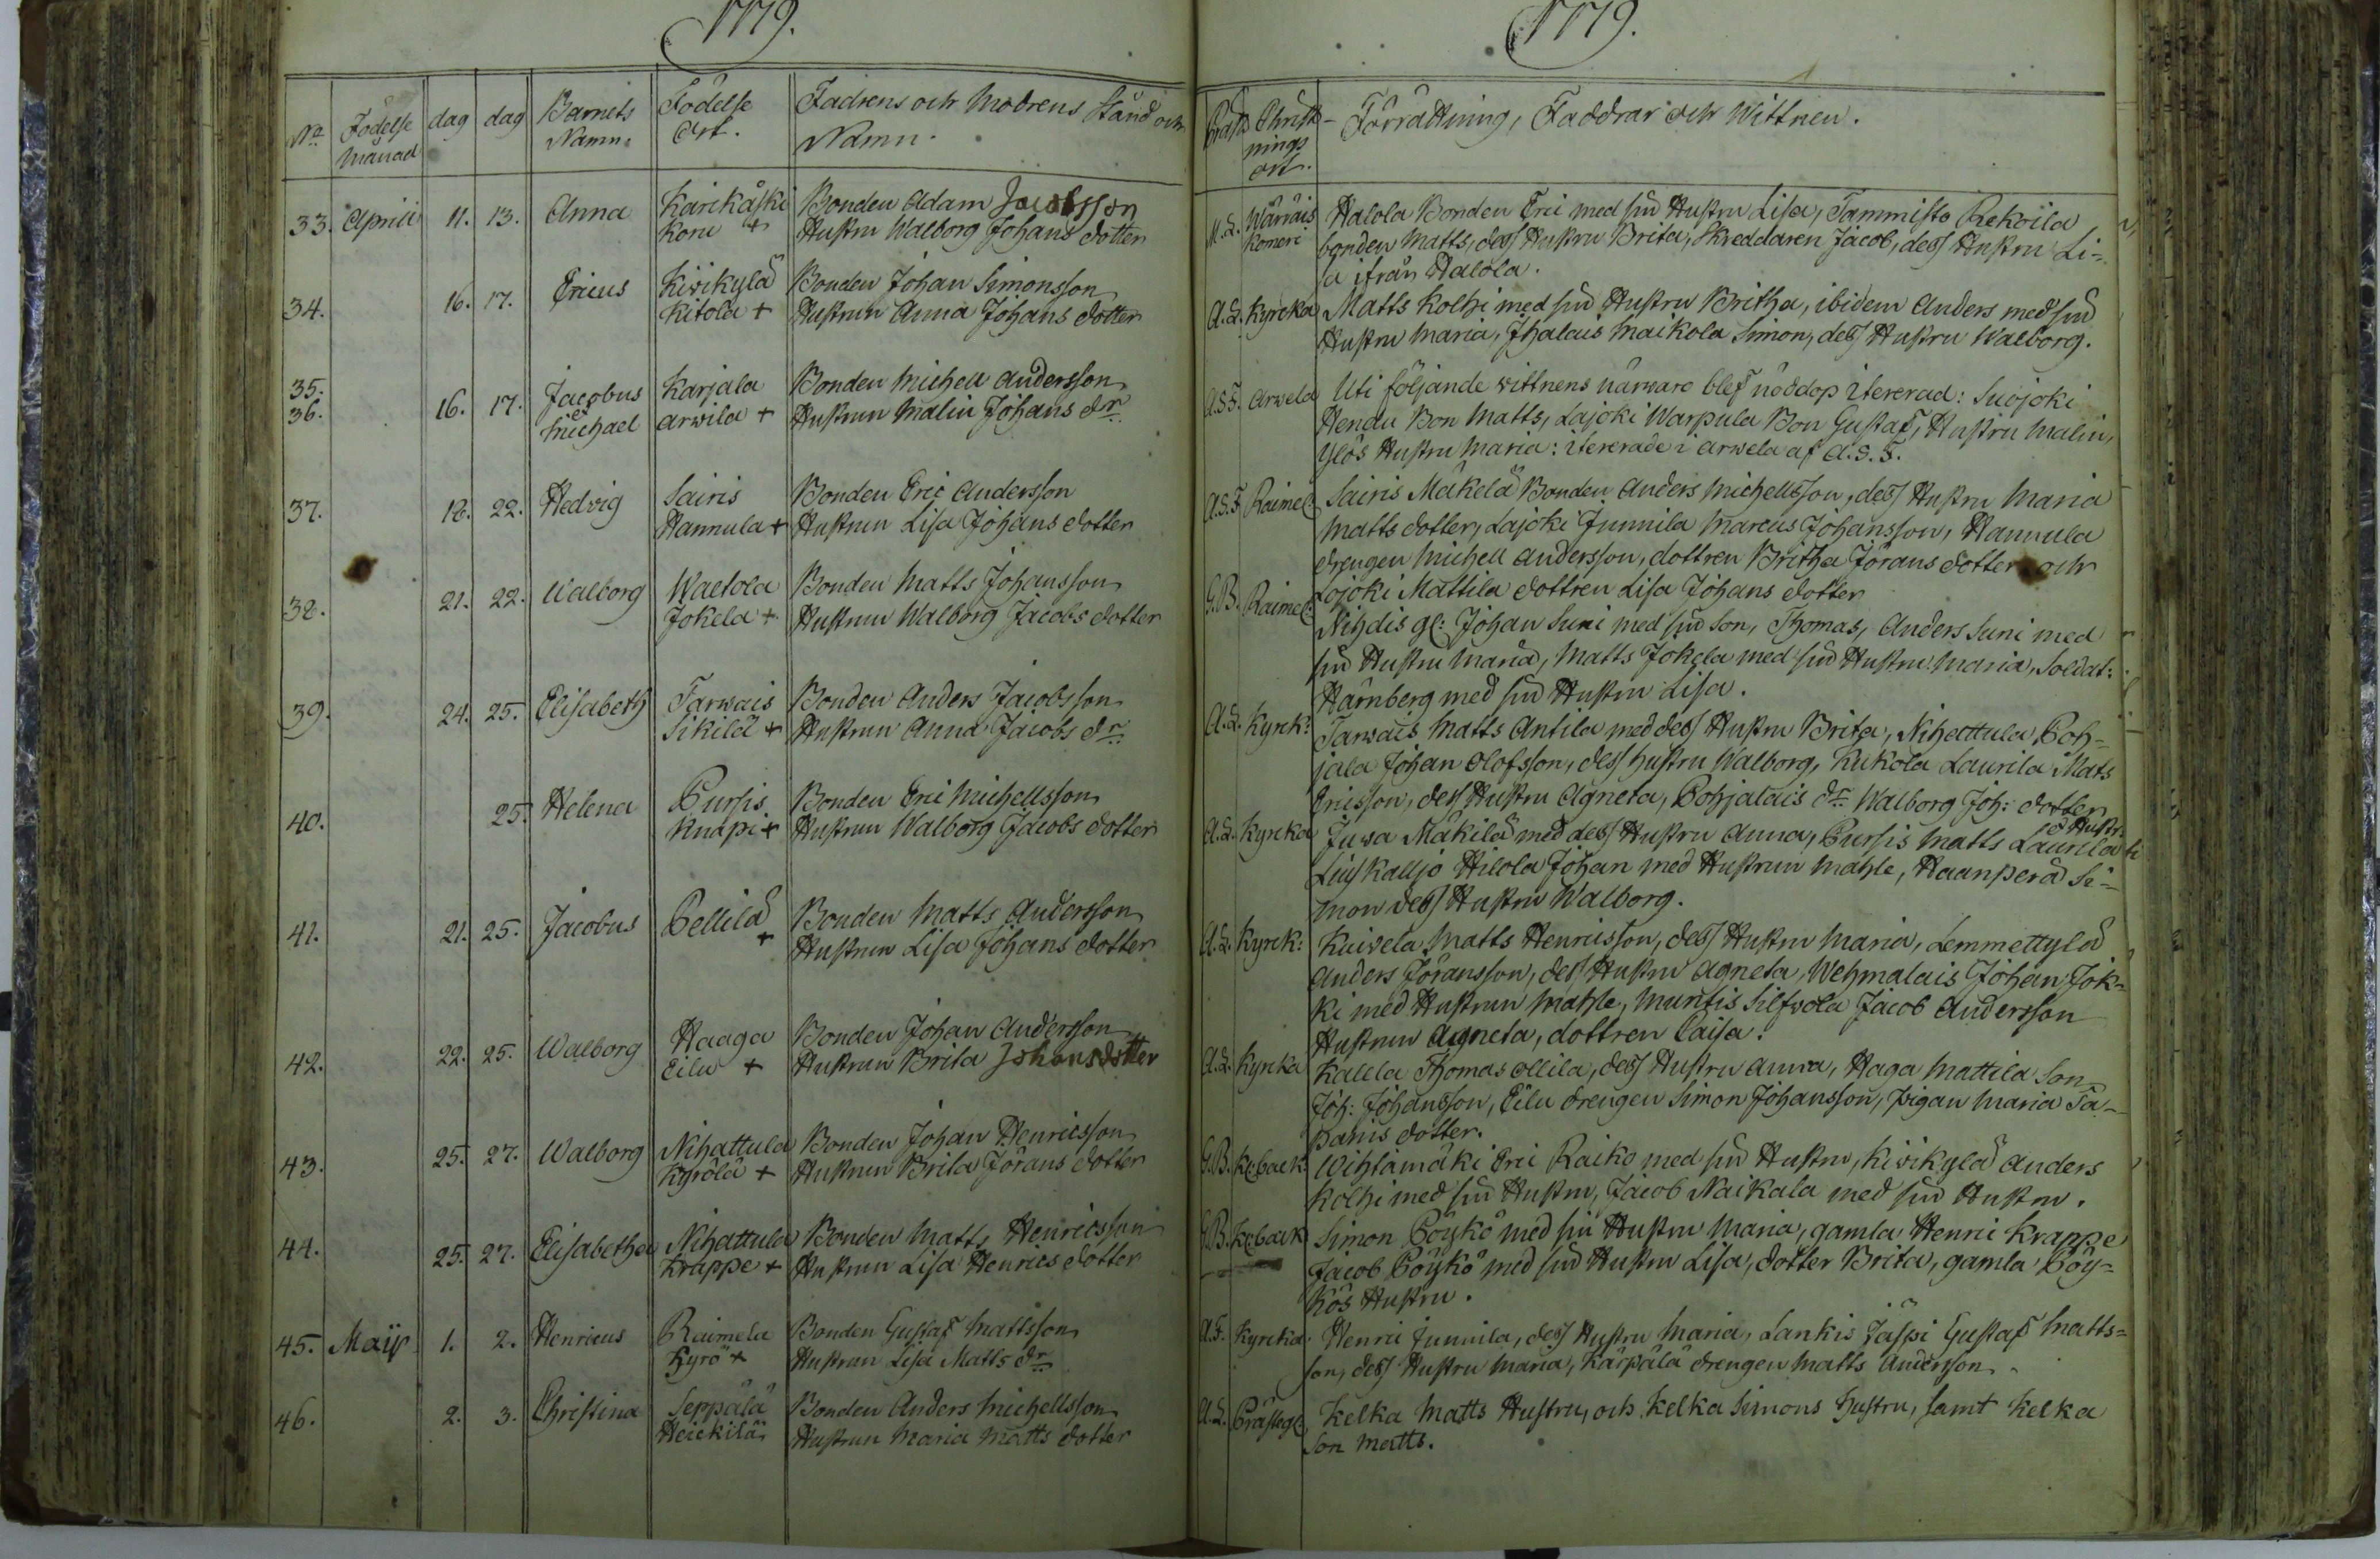 1779.
No Födelse Månad dag dag Barnets Namn. Födelse Ort. Fadrens och Modrens Stånd och Namn.
33. Aprill 11. 13. Anna Karikåski Bonden Adam Jacobsson
Koru + Hustru Walborg Johans dotter
34. 16. 17. Ericus Kivikylä Bonden Johan Simonsson
Kitola + Hustrun Anna Johans dotter
35. 36. 16. 17. Jacobus Karjala Bonden Michell Andersson
Michael Arwila + Hustrun Malin Johans dr.
37. 18. 22. Hedvig Sairis Bonden Eric Andersson
Hannula + Hustrun Lisa Johans dotter
38. 21. 22. Walborg Waltola Bonden Matts Johansson
Jokela + Hustrun Walborg Jacobs dotter
39. 24. 25. Elisabeth Tarwais Bonden Anders Jacobsson
Sikilä + Hustrun Anna Jacobs dr.
40. 25. Helena Pursis Bonden Eric Michellsson
Knapi + Hustrun Walborg Jacobs dotter
41. 21. 25. Jacobus Pellilä + Bonden Matts Andersson
Hustrun Lisa Johans dotter
42. 22. 25. Walborg Haaga Bonden Johan Andersson
Eilu + Hustrun Brita Johansdotter
43. 25. 27. Walborg Nihattula Bonden Johan Henricsson
Kyrölä + Hustrun Brita Jörans dotter
44. 25. 27. Elisabetha Nihattula Bonden Matts Henricsson
Krappe + Hustrun Lisa Henrics dotter
45. Maij 1. 2. Henricus Raimela Bonden Gustaf Mattsson
Kyrö + Hustrun Lisa Matts dr
46. 2. 3. Christina Seppälä Bonden Anders Michellsson
Heickilä Hustrun Maria Matts dotter
1779.
Präst Christnings ort. Förrättning, Faddrar och Wittnen.
Halola Bonden Eric med sin Hustru Lisa, Tammisto Rekoila
bonden Matts, dess Hustru Brita, Skreddaren Jacob, dess Hustru Li=
sa ifrån Halola.
A.L. Kyrcka Matts Kolhi med sin Hustru Britha, ibidem Anders med sin
Hustru Maria, Ihalais Maikola Simon, dess Hustru Walborg.
A.S.F. Arwela Uti följande wittnens närwaro blef nöddop itererad: Suojoki
Hendu Bon Matts, Lajoki Warpula Bon Gustaf, Hustru Malin,
Ylös Hustru Maria: itererade i Arwela af A.S.F.
A.S.F. Raimel: Sairis Mäkelä Bonden Anders Michellsson, dess Hustru Maria
Matts dotter, Lajoki Junnila Marcus Johansson, Hannula
drengen Michell Andersson, dottren Britha Jörans dotter och
Lojoki Mattila dottren Lisa Johans dotter
G.B. Raimel: Nihdis gl: Johan Suni med sin son, Thomas, Anders Suni med
sin Hustru Maria, Matts Jokela med sin Hustru Maria, Soldat:
Harnberg med sin Hustru Lisa.
A.L. Kyrck: Tarwais Matts Antila med dess Hustru Brita, Nihattula Poh=
jala Johan Olofsson, dess hustru Walborg, Kukola Laurila Mats
Ericsson, dess Hustru Agneta, Pohjalais dr. Walborg Joh: dotter
A.L. Kyrcka Juva Mäkilä med dess Hustru Anna, Pursis Matts Laurila
Hilola Johan med Hustrun Mahle, Haanperä Si=
mon dess Hustru Walborg.
A.L. Kyrck: Kaivela Matts Henricsson, dess Hustru Maria, Lemmettylä
Anders Jöransson, dess Hustru Agneta, Wehmalais Johan Jok=
ki med Hustrun Mahle, Muntis Silfvola Jacob Andersson
Hustrun Agneta, dottren Caisa.
A.L. Kyrcka Kalela Thomas Ollila, dess Hustru Anna, Haga Mattila Son
Joh: Johansson, Eilu drengen Simon Johansson, pigan Maria Ta=
panis dotter.
G.B. Keback: Wihlamäki Eric Raiko med sin Hustru, Kivikylä Anders
Kolhi med sin Hustru, Jacob Naikala med sin Hustru.
G.B. Keback Simon Pöykö med sin Hustru Maria, gamla Henric Krappe
Jacob Pöykö med sin Hustru Lisa, dotter Brita, gamla Pöy=
kös Hustru.
A.F. Kyrcka. Henric Junnila, dess Hustru Maria, Lankis Jäspi Gustaf Matts=
son, dess Hustru Maria, Kärpälä drengen Matts Andersson.
A.L. Prästeg: Kelka Matts Hustru, och Kelka Simons Hustru, samt Kelka
Son Matts.